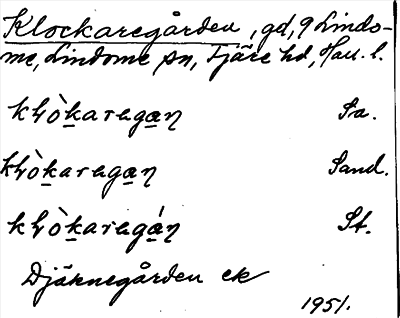 Klockaregården, gd, 9 Lindo-
me, Lindome sn, Fjäre hd, Hall. l.
kɫò̱karega̱ŋ Sa.
kɫò̱karega̱ŋ Sand.
kɫò̱karegá̱ŋ St.
Djäknegården ek
1951.